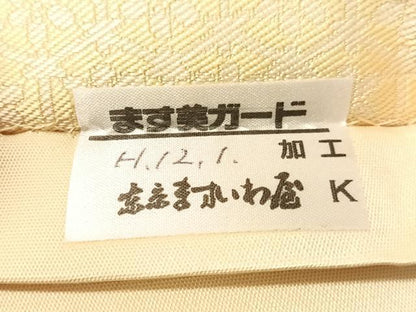 ます美ガード
H.12.1. 加工
東京ますいわ屋 K